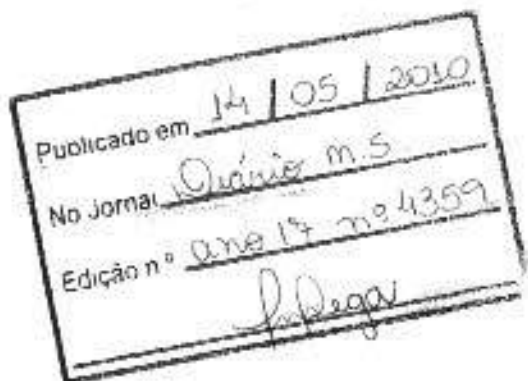 Publicado em 14 / 05 / 2010
No Jornal Diário m.s
Edição nº ano 17 nº 4359